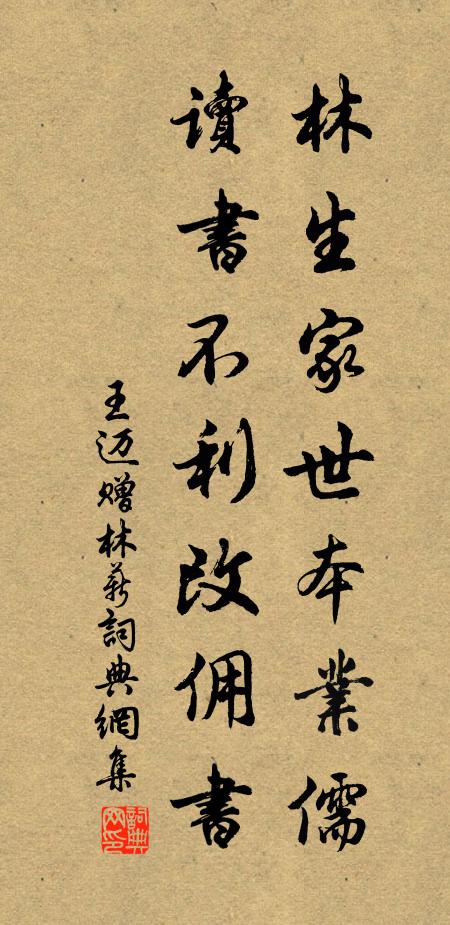 林生家世本業儒
讀書不利改佣書
王迈赠林薪詞典網集
詞典網印